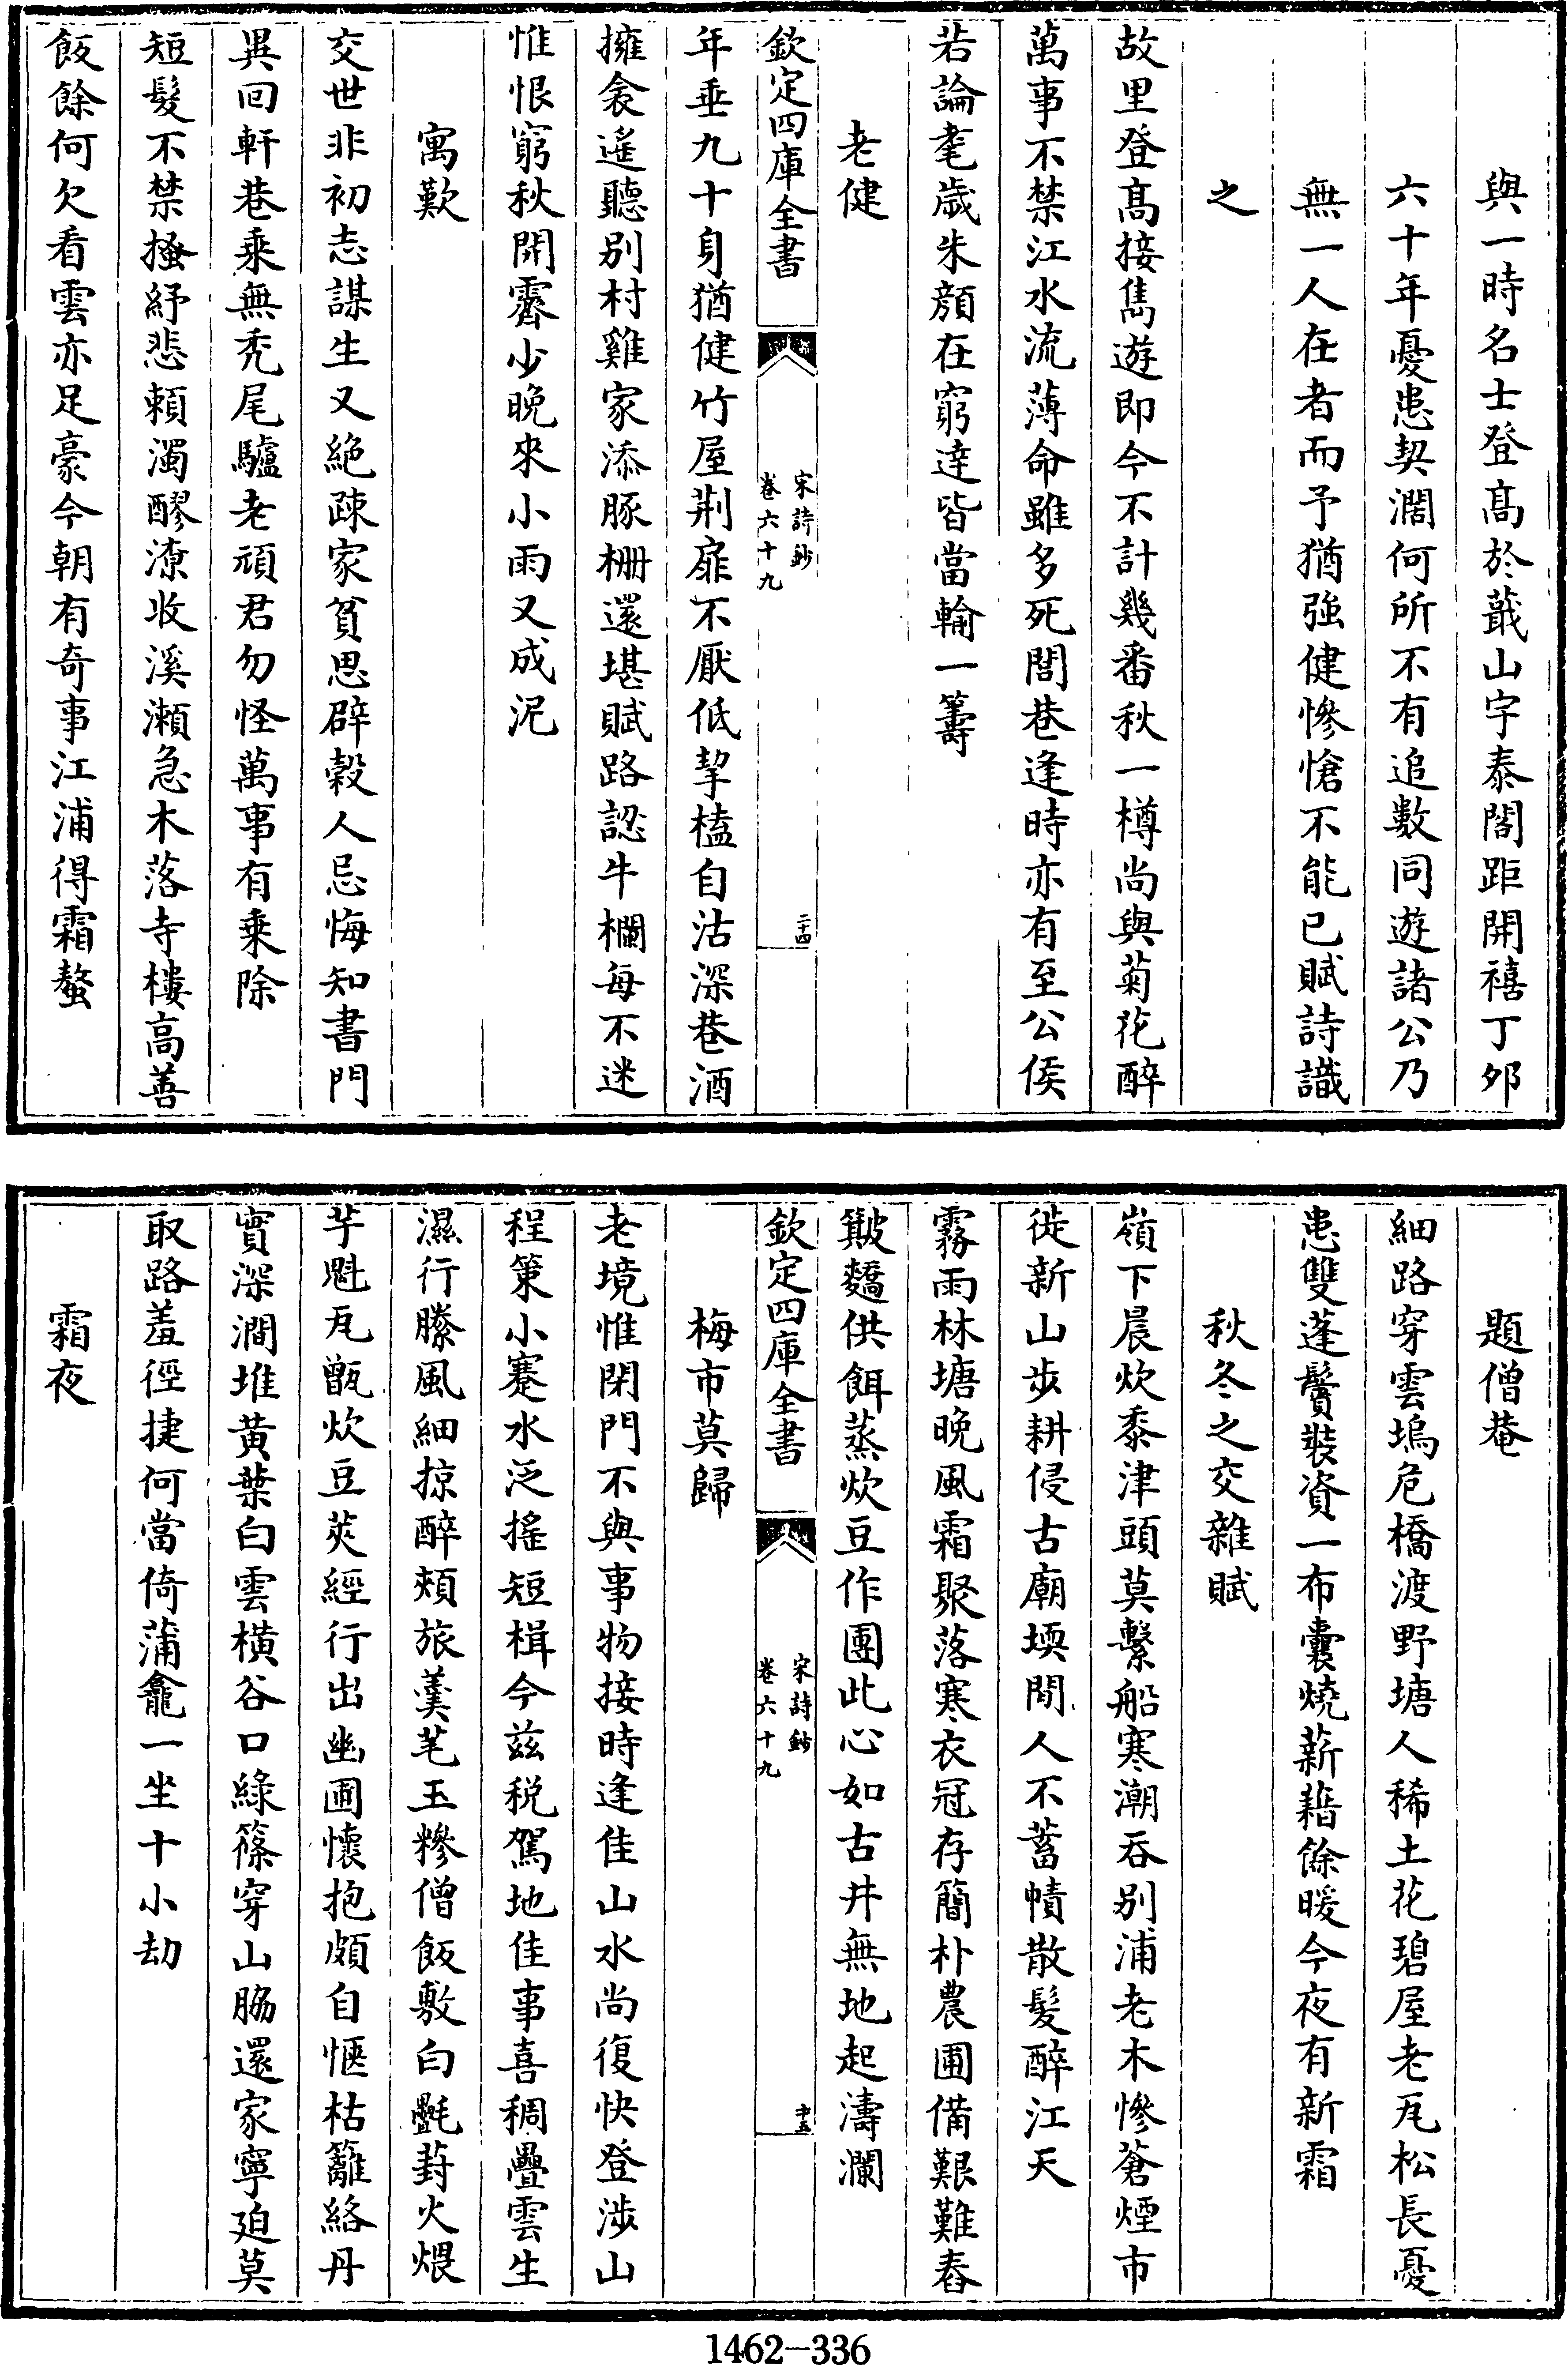 與一時名士登髙於蕺山宇泰閣距開禧丁夘
六十年憂患契濶何所不有追數同遊諸公乃
無一人在者而予猶強健慘愴不能已賦詩識
之
故里登髙接雋遊即今不計幾番秋一樽尚與菊花醉
萬事不禁江水流薄命雖多死閭巷逢時亦有至公侯
若論耄歲朱顔在窮達皆當輸一籌
老健
欽定四庫全書
宋詩鈔
卷六十九
二十四
年垂九十身猶健竹屋荆扉不厭低挈榼自沽深巷酒
擁衾遙聽别村雞家添豚栅還堪賦路認牛欄每不迷
惟恨窮秋閑霽少晩來小雨又成泥
寓歎
交世非初志謀生又絶疎家貧思辟榖人忌悔知書門
異回軒巷乘無秃尾驢老頑君勿怪萬事有乗除
短髮不禁搔紓悲頼濁醪潦收溪瀬急木落寺樓高善
飯餘何欠看雲亦足豪今朝有奇事江浦得霜螯
題僧菴
細路穿雲塢危橋渡野塘人稀土花碧屋老瓦松長憂
患雙蓬鬢裝資一布囊燒薪藉餘暖今夜有新霜
秋冬之交雜賦
嶺下晨炊黍津頭莫繫船寒潮吞别浦老木慘蒼煙市
徙新山步耕侵古廟堧閒人不蓄幘散髪醉江天
霧雨林塘晩風霜聚落寒衣冠存簡朴農圃備艱難舂
簸䴬供餌蒸炊豆作團此心如古井無地起濤瀾
欽定四庫全書
宋詩鈔
卷六十九
二十五
梅市莫歸
老境惟閉門不與事物接時逢佳山水尚復快登涉山
程策小蹇水泛搖短楫今兹税駕地佳事喜稠疊雲生
濕行縢風細掠醉頰旅羮芼玉糝僧飯敷白㲲葑火煨
芋魁瓦甑炊豆莢經行出幽圃懷抱頗自愜枯籬絡丹
實深澗堆黄葉白雲横谷口綠篠穿山脇還家寧廹莫
取路羞徑捷何當倚蒲龕一坐十小劫
霜夜
1462-336